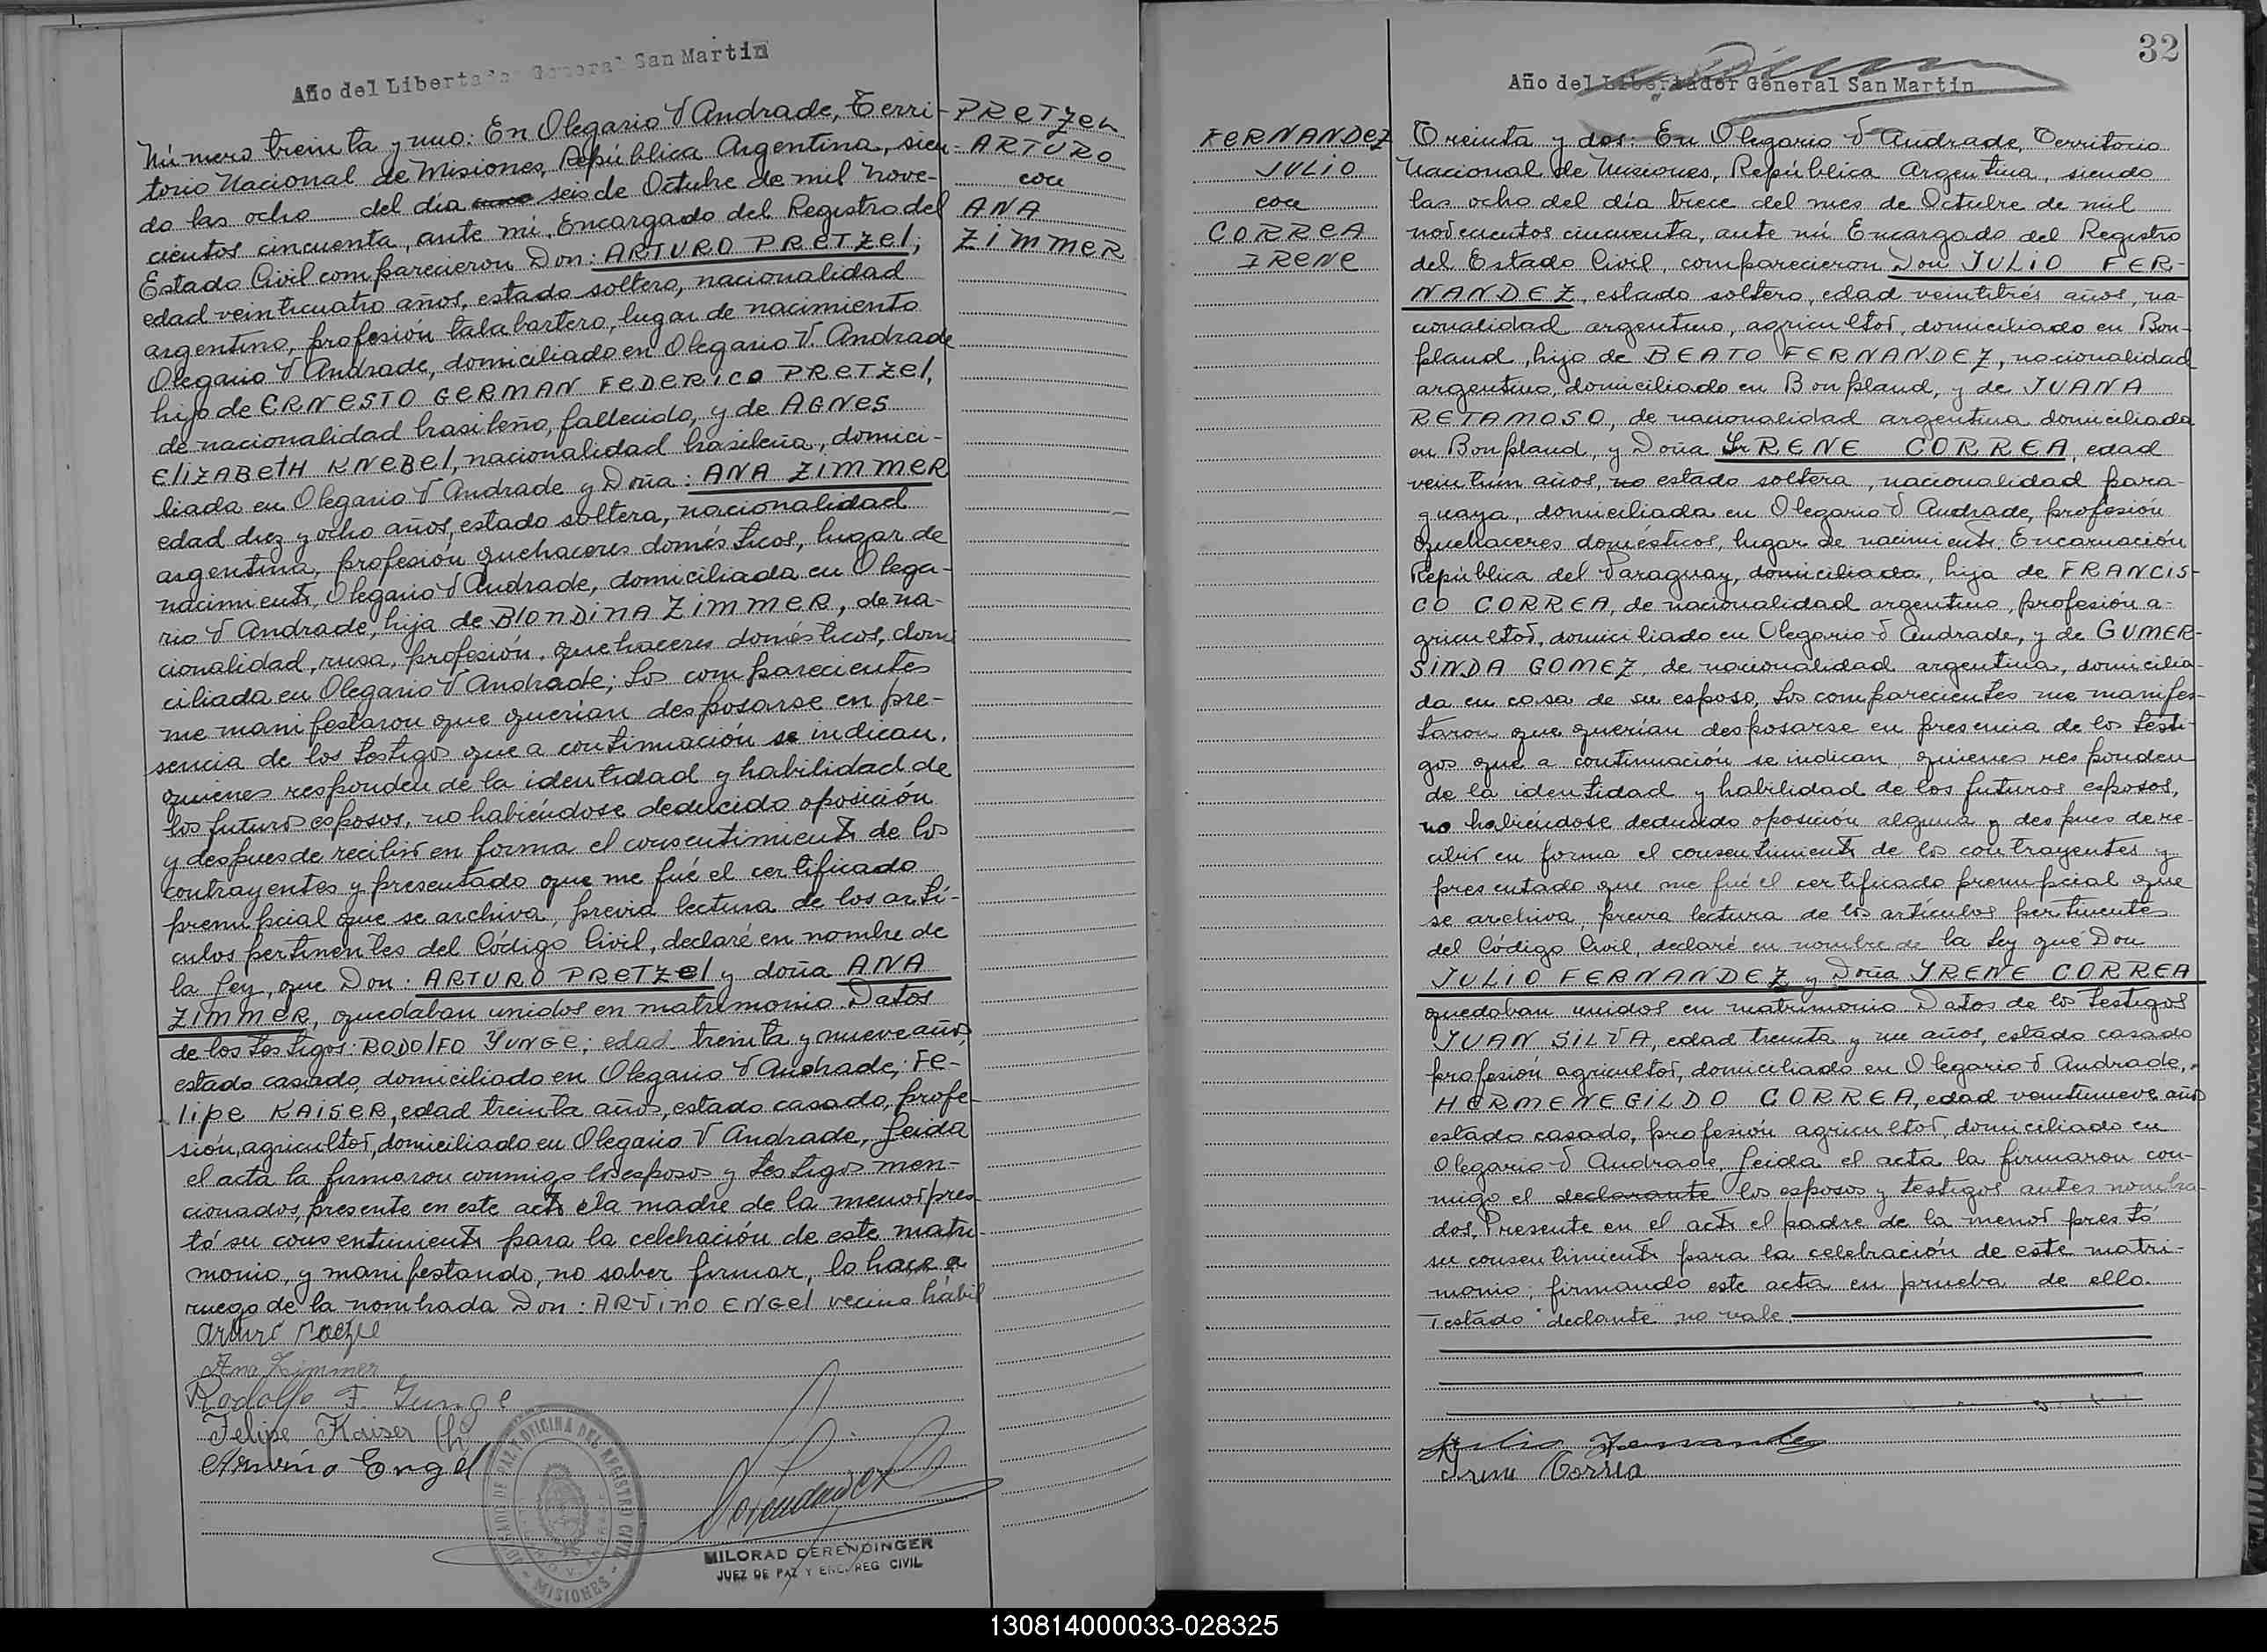 Año del Libertador General San Martin
Número treinta y uno: En Olegario V Andrade, Terri-
torio Nacional de Misiones, República Argentina, sien-
do las ocho del día seis de Octubre de mil nove-
cientos cincuenta, ante mí, Encargado del Registro del
Estado Civil comparecieron Don: ARTURO PRETZEL;
edad veinticuatro años, estado soltero, nacionalidad
argentino, profesión talabartero, lugar de nacimiento
Olegario V Andrade, domiciliado en Olegario V. Andrade
hijo de ERNESTO GERMAN FEDERICO PRETZEL,
de nacionalidad brasileño, fallecido, y de AGNES
ELIZABETH KNEBEL, nacionalidad brasileña, domici-
liada en Olegario V Andrade y Doña: ANA ZIMMER
edad diez y ocho años, estado soltera, nacionalidad
argentina, profesión quehaceres domésticos, lugar de
nacimiento, Olegario V Andrade, domiciliada en Olega-
rio V Andrade, hija de BLONDINA ZIMMER, de na-
cionalidad, rusa, profesión, quehaceres domésticos, domi
ciliada en Olegario V Andrade; Los comparecientes
me manifestaron que querían desposarse en pre-
sencia de los testigos que a continuación se indican,
quienes responden de la identidad y habilidad de
los futuros esposos, no habiéndose deducido oposición
y despues de recibir en forma el consentimiento de los
contrayentes y presentado que me fué el certificado
prenupcial que se archiva, previa lectura de los artí-
culos pertinentes del Código Civil, declaré en nombre de
la Ley, que Don: ARTURO PRETZEL y doña ANA
ZIMMER, quedaban unidos en matrimonio. Datos
de los testigos: RODOLFO YUNGE; edad treinta y nueve años,
estado casado, domiciliado en Olegario V Andrade, FE-
LIPE KAISER, edad treinta años, estado casado, profe-
sión, agricultor, domiciliado en Olegario V Andrade, Leida
el acta la firmaron conmigo los esposos y testigos men-
cionados, presente en este acto la madre de la menor pres-
tó su consentimiento para la celebración de este matri-
monio, y manifestando, no saber firmar, lo hace a
ruego de la nombrada Don: ARVINO ENGEL vecino hábil
Arturo
Ana Zimmer
Rodolfo F. Yunge
Felipe Kaiser (h)
Arvino Engel
JUZGADO DE PAZ Y OFICINA DEL REGISTRO CIVIL
MISIONES
MILORAD DERENDINGER
JUEZ DE PAZ Y ENC. REG CIVIL
PRETZEL
ARTURO
con
ANA
ZIMMER
32
Año del Libertador General San Martin
FERNANDEZ
JULIO
con
CORREA
IRENE
Treinta y dos: En Olegario V Andrade, Territorio
Nacional de Misiones, República Argentina, siendo
las ocho del día trece del mes de Octubre de mil
novecientos cincuenta, ante mí Encargado del Registro
del Estado Civil, comparecieron Don JULIO FER-
NANDEZ, estado soltero, edad veintitrés años, na-
cionalidad argentino, agricultor, domiciliado en Bon-
pland, hijo de BEATO FERNANDEZ, nacionalidad
argentino, domiciliado en Bonpland, y de JUANA
RETAMOSO, de nacionalidad argentina domiciliada
en Bonpland, y Doña IRENE CORREA, edad
veintiún años, no estado soltera, nacionalidad para-
guaya, domiciliada en Olegario V Andrade, profesión
quehaceres domésticos, lugar de nacimiento, Encarnación
República del Paraguay, domiciliada, hija de FRANCIS-
CO CORREA, de nacionalidad argentino, profesión a-
gricultor, domiciliado en Olegario V Andrade, y de GUMER-
SINDA GOMEZ, de nacionalidad argentina, domicilia-
da en casa de su esposo, Los comparecientes me manifes-
taron que querían desposarse en presencia de los testi-
gos que a continuación se indican, quienes responden
de la identidad y habilidad de los futuros esposos,
no habiendose deducido oposición alguna y despues de re-
cibir en forma el consentimiento de los contrayentes y
presentado que me fué el certificado prenupcial que
se archiva, previa lectura de los artículos pertinentes
del Código Civil, declaré en nombre de la Ley que Don
JULIO FERNANDEZ y Doña YRENE CORREA
quedaban unidos en matrimonio. Datos de los testigos
JUAN SILVA, edad treinta y un años, estado casado
profesión agricultor, domiciliado en Olegario V Andrade,
HERMENEGILDO CORREA, edad veintinueve años
estado casado, profesión agricultor, domiciliado en
Olegario V Andrade, Leida el acta la firmaron con-
migo el declarante los esposos y testigos antes nombra-
dos, Presente en el acto el padre de la menor prestó
su consentimiento para la celebración de este matri-
monio; firmando este acta en prueba de ello.
Testado "declante" no vale.
Julio Fernandez
Irene Correa
130814000033-028325